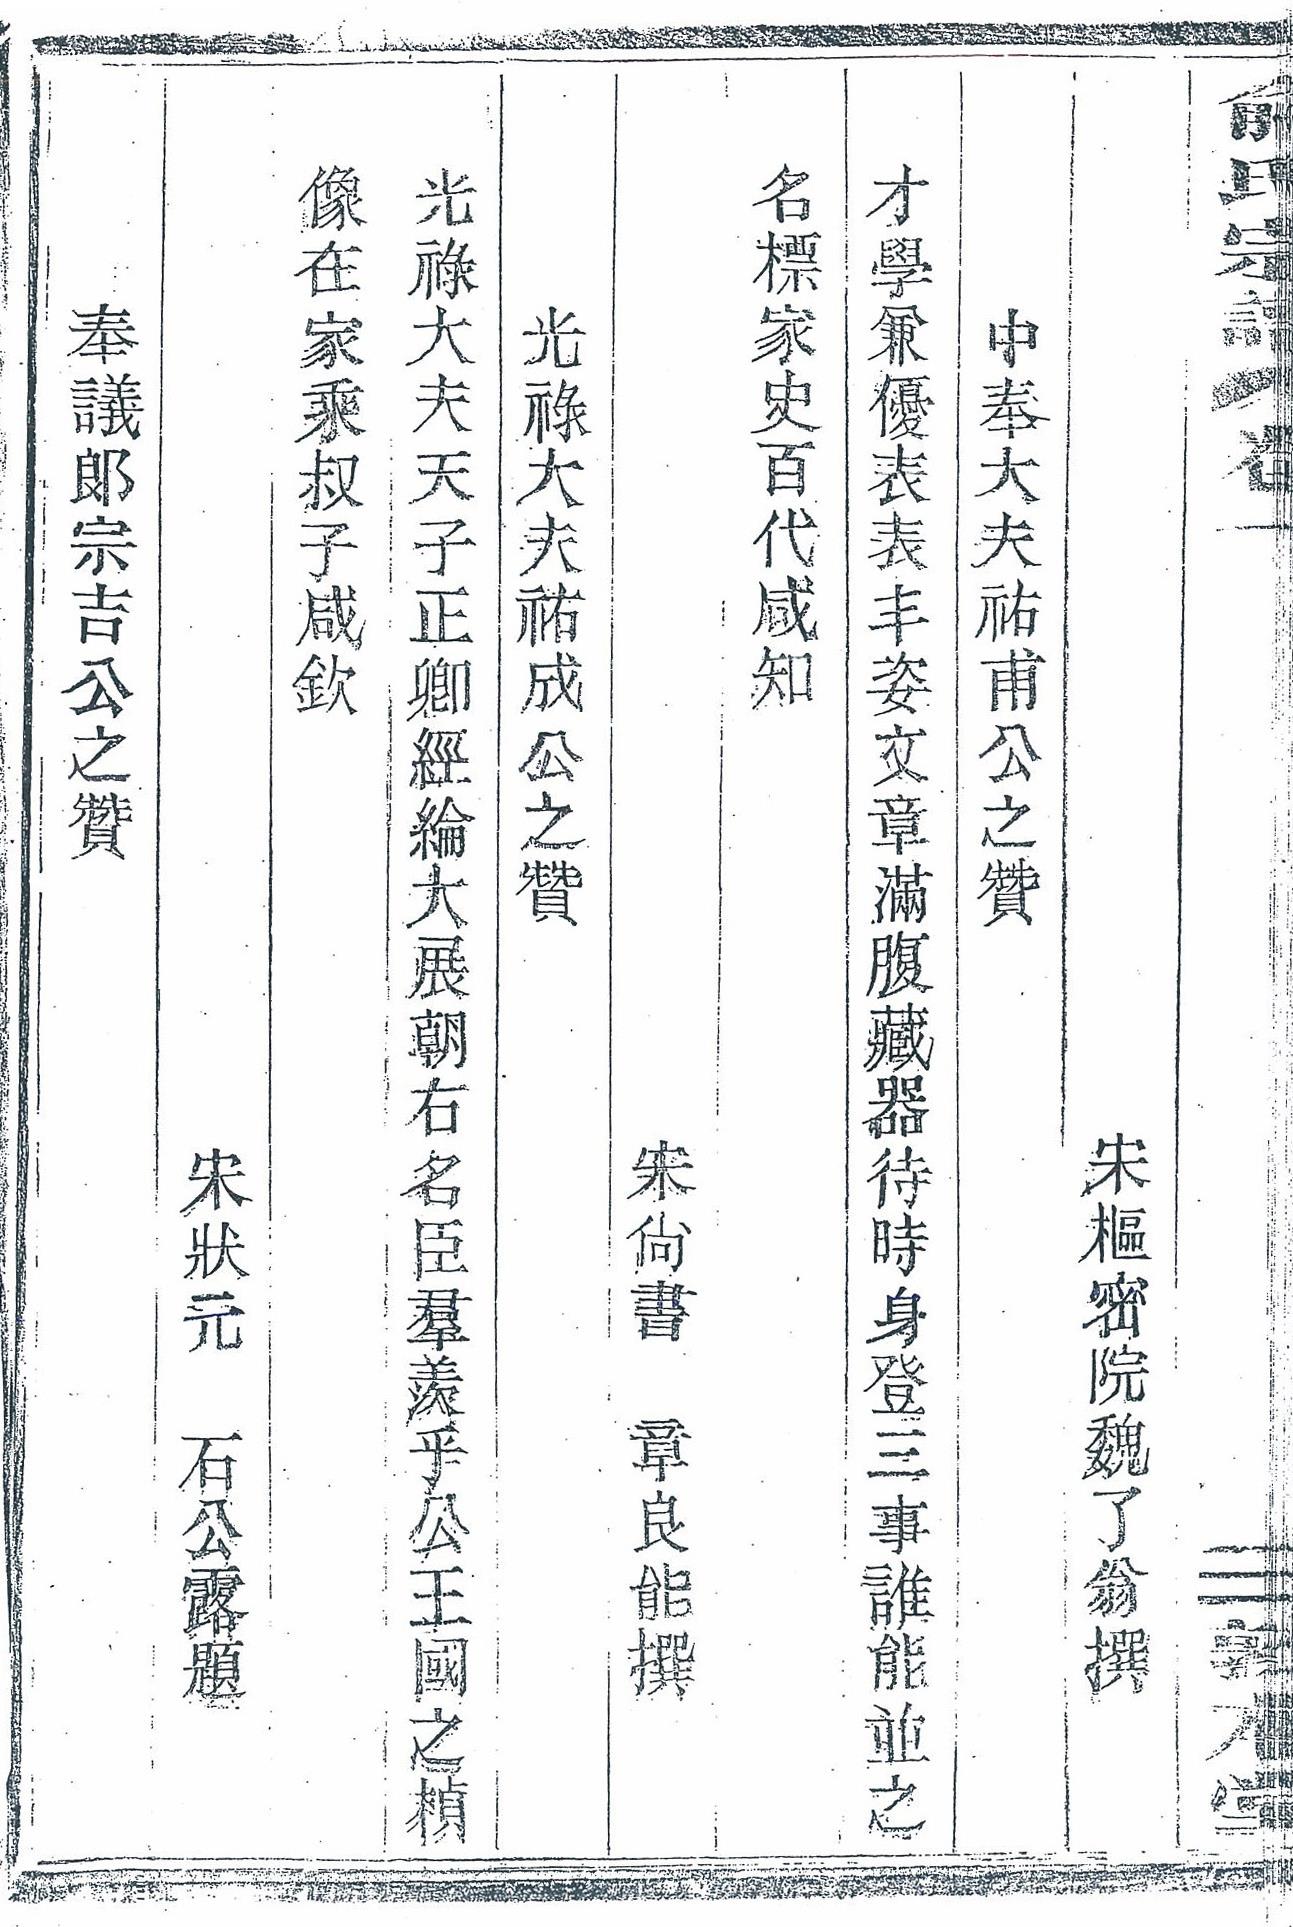 俞氏宗譜 卷一
宋樞密院魏了翁撰
中奉大夫祐甫公之贊
才學兼優表表丰姿文章滿腹藏器待時身登三事誰能並之
名標家史百代咸知
宋尙書 章良能撰
光祿大夫祐成公之贊
光祿大夫天子正卿經綸大展朝右名臣羣羨乎公王國之楨
像在家乘叔子咸欽
宋狀元 石公露題
奉議郎宗吉公之贊